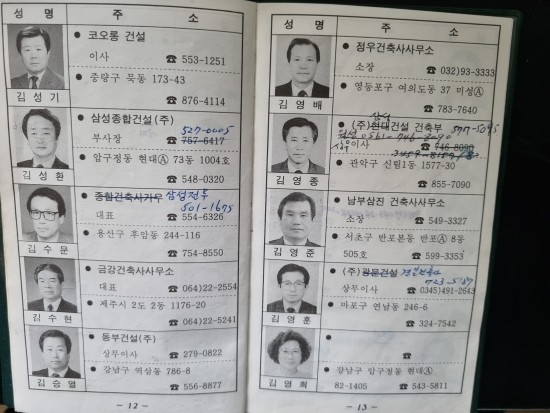 성 명 주 소
● 코오롱 건설
이사 ☎ 553-1251
● 중랑구 묵동 173-43
☎ 876-4114
김 성 기
● 삼성종합건설(주)
부사장 527-0005
☎ 757-6417
● 압구정동 현대Ⓐ 73동 1004호
☎ 548-0320
김 성 환
● 종합건축사가우 삼성전무
501-1695
대표 ☎ 554-6326
● 용산구 후암동 244-116
☎ 754-8550
김 수 문
● 금강건축사사무소
대표 ☎ (064)22-2554
● 제주시 2도 2동 1176-20
☎ (064)22-5241
김 수 현
● 동부건설(주)
상무이사 ☎ 279-0822
● 강남구 역삼동 786-8
☎ 556-8877
김 승 열
- 12 -
성 명 주 소
● 점우건축사사무소
소장 ☎ (032)93-3333
● 영등포구 여의도동 37 미성Ⓐ
☎ 783-7640
김 영 배
● (주)현대건설 건축부 577-5095
이사 ☎ 746-8090
● 관악구 신림1동 1577-30
☎ 855-7090
김 영 종
● 남부삼진 건축사사무소
소장 ☎ 549-3327
● 서초구 반포본동 반포Ⓐ 8동
505호 ☎ 599-3353
김 영 준
● (주)광문건설
상무이사 ☎ (0345)491-2643
● 마포구 연남동 246-6
☎ 324-7542
김 영 훈
● ☎
● 강남구 압구정동 현대Ⓐ
82-1405 ☎ 543-5811
김 영 희
- 13 -